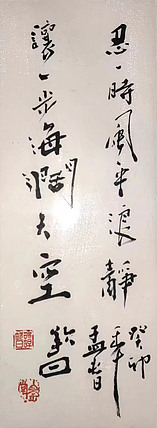 忍一時風平浪靜
讓一步海濶天空
癸卯年
孟春